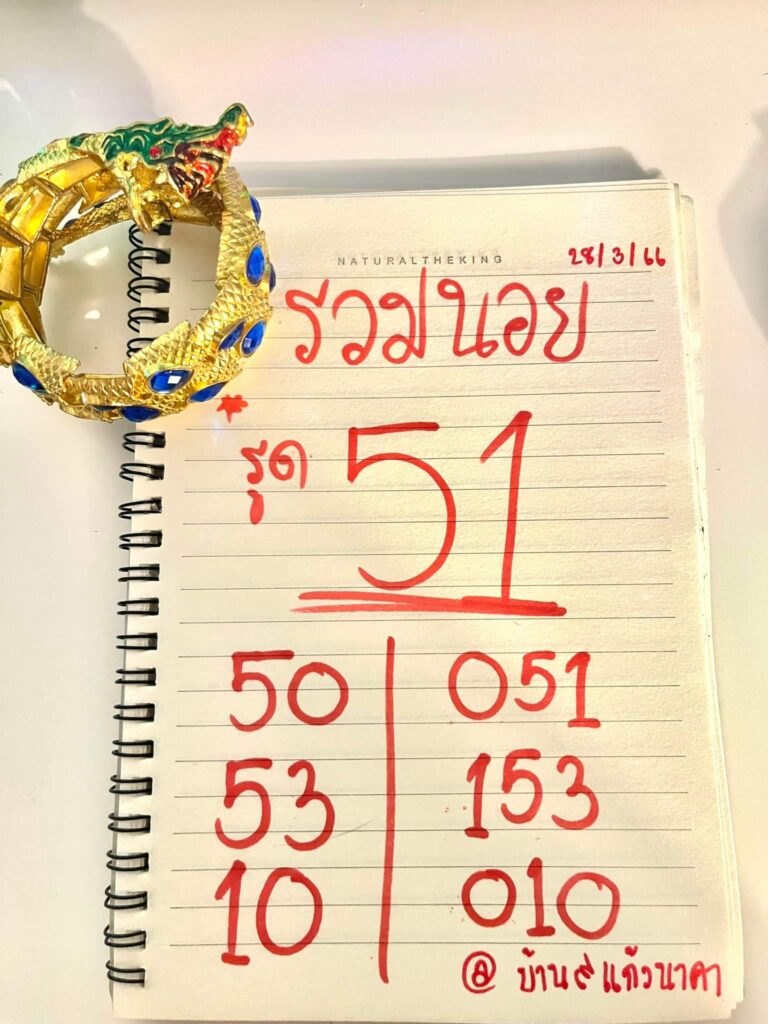 NATURALTHEKING
28/3/66
รวมนอย
รูด 51
50 051
53 153
10 010
@ บ้าน๙แก้วนาคา